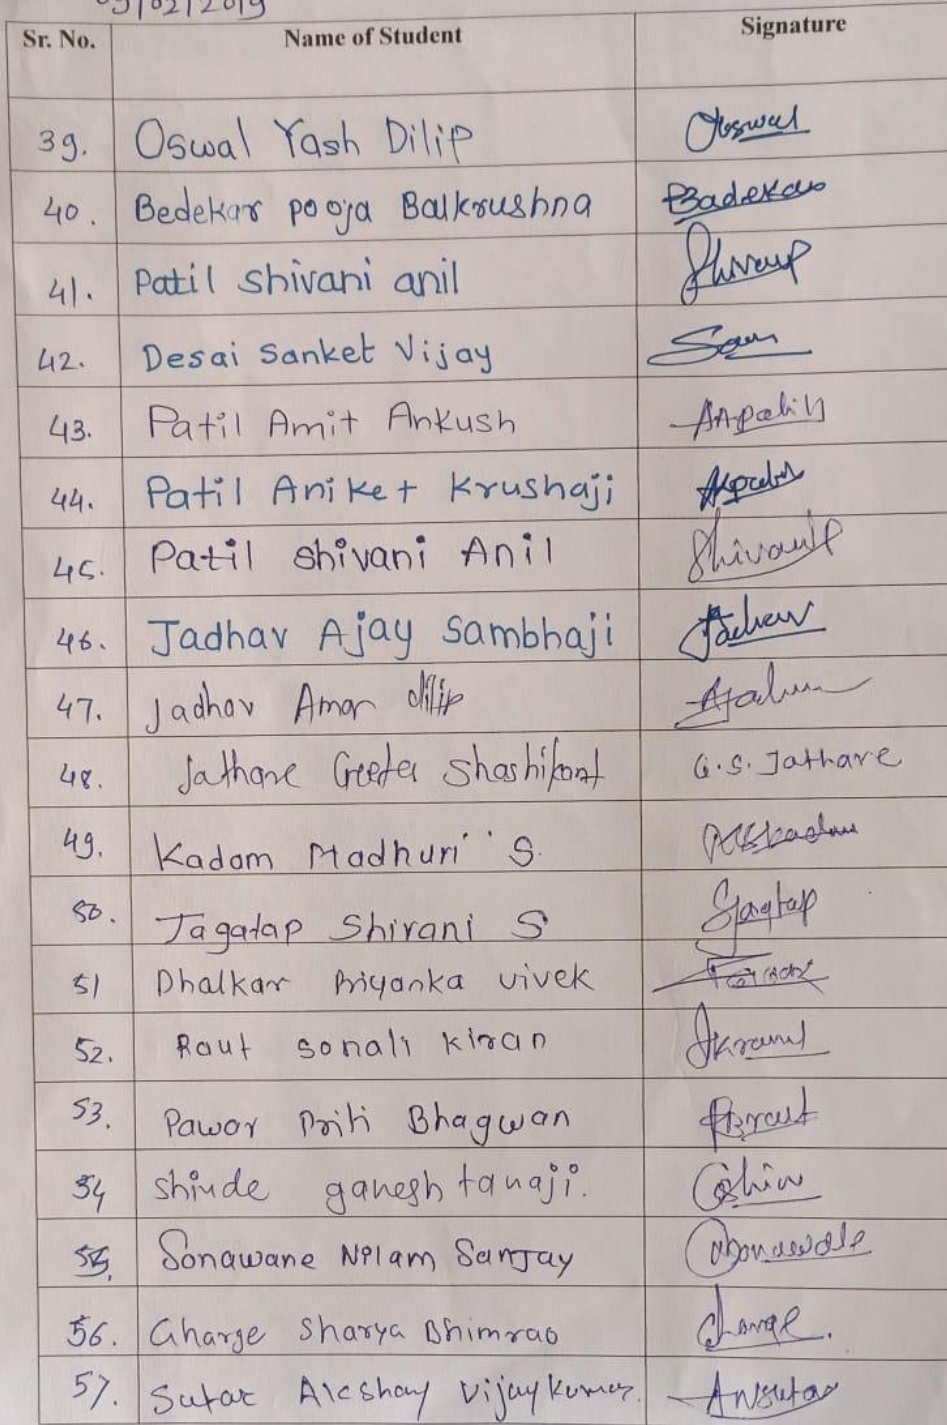 09/02/2019
Sr. No. Name of Student Signature
39. Oswal Yash Dilip
40. Bedekar pooja Balkrushna Badekar
41. Patil shivani anil
42. Desai Sanket Vijay
43. Patil Amit Ankush AApatil
44. Patil Aniket Krushaji AKpatil
45. Patil shivani Anil
46. Jadhav Ajay Sambhaji Jadhav
47. Jadhav Amar dilip
48. Jathare Geeta Shashikant G.S. Jathare
49. Kadam Madhuri S.
50. Jagatap Shivani S
51 Dhalkar Priyanka vivek
52. Raut sonali kiran
53. Pawar Priti Bhagwan
54 shinde ganesh tanaji.
55. Sonawane Nilam Sanjay
56. Gharge Sharya Bhimrao
57. Sutar Akshay Vijaykumar.